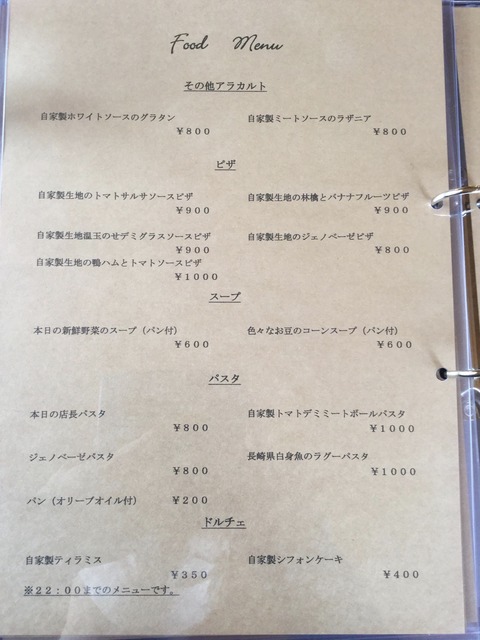 Food Menu
その他アラカルト
自家製ホワイトソースのグラタン
￥800
自家製ミートソースのラザニア
￥800
ピザ
自家製生地のトマトサルサソースピザ
￥900
自家製生地の林檎とバナナフルーツピザ
￥900
自家製生地温玉のせデミグラスソースピザ
￥900
自家製生地のジェノベーゼピザ
￥800
自家製生地の鴨ハムとトマトソースピザ
￥1000
スープ
本日の新鮮野菜のスープ（パン付）
￥600
色々なお豆のコーンスープ（パン付）
￥600
パスタ
本日の店長パスタ
￥800
自家製トマトデミミートボールパスタ
￥1000
ジェノベーゼパスタ
￥800
長崎県白身魚のラグーパスタ
￥1000
パン（オリーブオイル付） ￥200
ドルチェ
自家製ティラミス
￥350
自家製シフォンケーキ
￥400
※22：00までのメニューです。